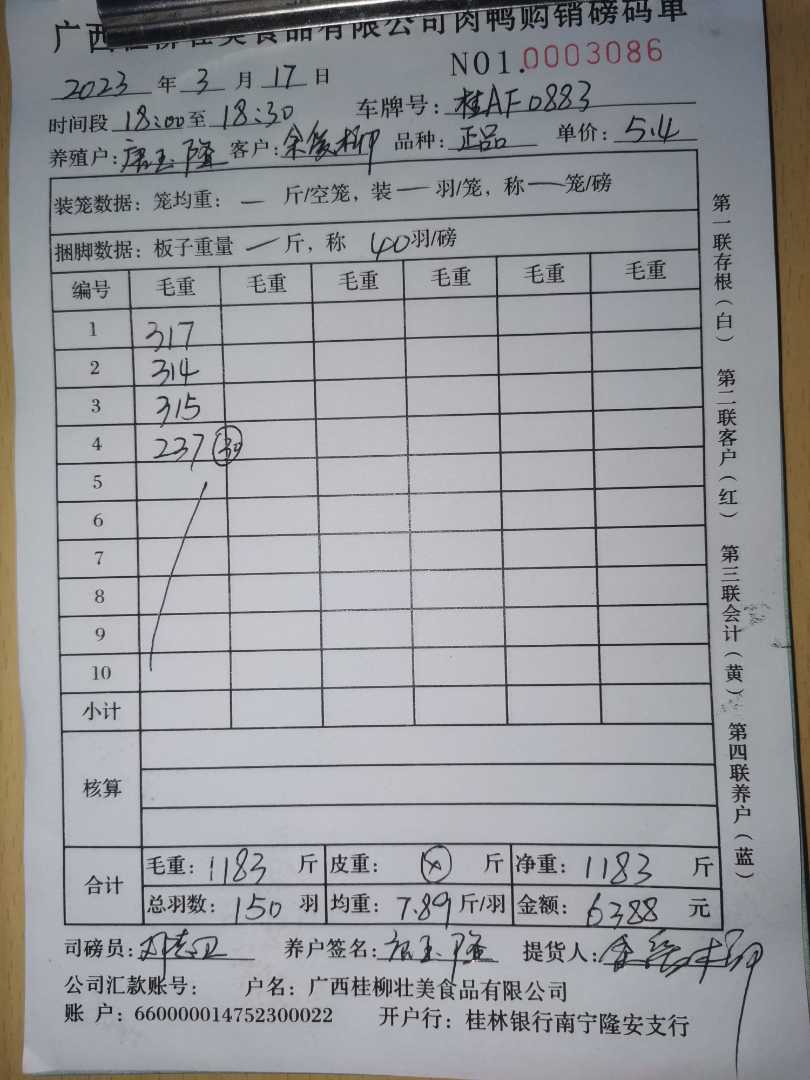 广西桂柳壮美食品有限公司肉鸭购销磅码单
NO1.0003086
2023 年 3 月 17 日
时间段 18:00 至 18:30 车牌号: 桂AF0883
养殖户: 唐玉隆 客户: 余 柳 品种: 正品 单价: 5.4
装笼数据: 笼均重: — 斤/空笼, 装 — 羽/笼, 称 — 笼/磅
捆脚数据: 板子重量 — 斤, 称 40 羽/磅
编号 毛重 毛重 毛重 毛重 毛重 毛重
1 317
2 314
3 315
4 237 30
5
6
7
8
9
10
小计
核算
合计
毛重: 1183 斤 皮重: 斤 净重: 1183 斤
总羽数: 150 羽 均重: 7.89 斤/羽 金额: 6388 元
司磅员: 养户签名: 唐玉隆 提货人: 余 柳
公司汇款账号: 户名: 广西桂柳壮美食品有限公司
账 户: 660000014752300022 开户行: 桂林银行南宁隆安支行
第一联存根(白) 第二联客户(红) 第三联会计(黄) 第四联养户(蓝)